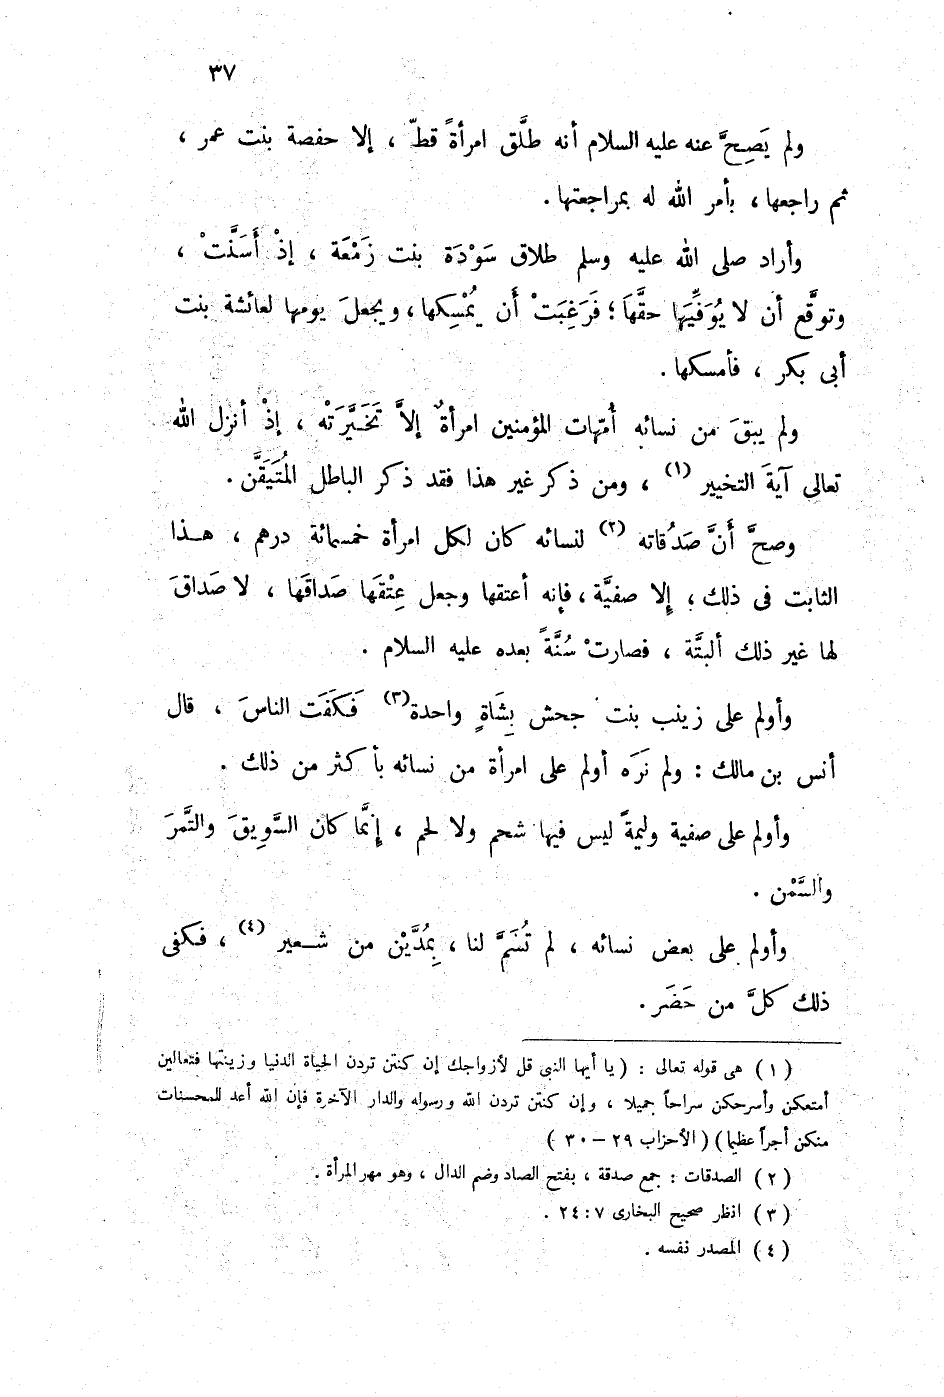 ٣٧
ولم يَصِحَّ عنه عليه السلام أنه طلَّق امرأةً قطّ ، إلا حفصة بنت عمر ،
ثم راجعها ، بأمر الله له بمراجعتها .
وأراد صلى الله عليه وسلم طلاق سَوْدَة بنت زَمْعَة ، إذْ أَسَنَّتْ ،
وتوقَّع أن لا يُوَفِّيَها حقَّها ؛ فَرَغِبَتْ أن يُمْسِكها ، ويجعلَ يومها لعائشة بنت
أبى بكر ، فأمسكها .
ولم يبقَ من نسائه أُمّهات المؤمنين امرأةٌ إلاَّ تَخَيَّرَتْه ، إذْ أنزل الله
تعالى آيةَ التخيير (١) ، ومن ذكر غير هذا فقد ذكر الباطل المُتَيَقَّن .
وصحَّ أَنَّ صَدُقاته (٢) لنسائه كان لكل امرأة خمسمائة درهم ، هـذا
الثابت فى ذلك ؛ إِلا صفيَّة ، فإنه أعتقها وجعل عِتْقَها صَداقَها ، لا صَداقَ
لها غير ذلك ألبتَّة ، فصارتْ سُنَّةً بعده عليه السلام .
وأولم على زينب بنت جحش بِشَاةٍ واحدة (٣) فَكَفَت الناسَ ، قال
أنس بن مالك : ولم نَرَه أولم على امرأة من نسائه بأكثر من ذلك .
وأولم على صفية وليمةً ليس فيها شحم ولا لحم ، إِنَّما كان السَّوِيقَ والتَّمرَ
والسَّمْن .
وأولم على بعض نسائه ، لم تُسَمَّ لنا ، بِمُدَّيْن من شـعير (٤) ، فكفى
ذلك كلَّ من حَضَر .
( ١ ) هى قوله تعالى : ( يا أيها النبى قل لأزواجك إن كنتن تردن الحياة الدنيا وزينتها فتعالين
أمتعكن وأسرحكن سراحاً جميلا ، وإن كنتن تردن الله ورسوله والدار الآخرة فإن الله أعد للمحسنات
منكن أجراً عظيما ) ( الأحزاب ٢٩ – ٣٠ )
( ٢ ) الصدقات : جمع صدقة ، بفتح الصاد وضم الدال ، وهو مهر المرأة .
( ٣ ) انظر صحيح البخارى ٧ : ٢٤ .
( ٤ ) المصدر نفسه .